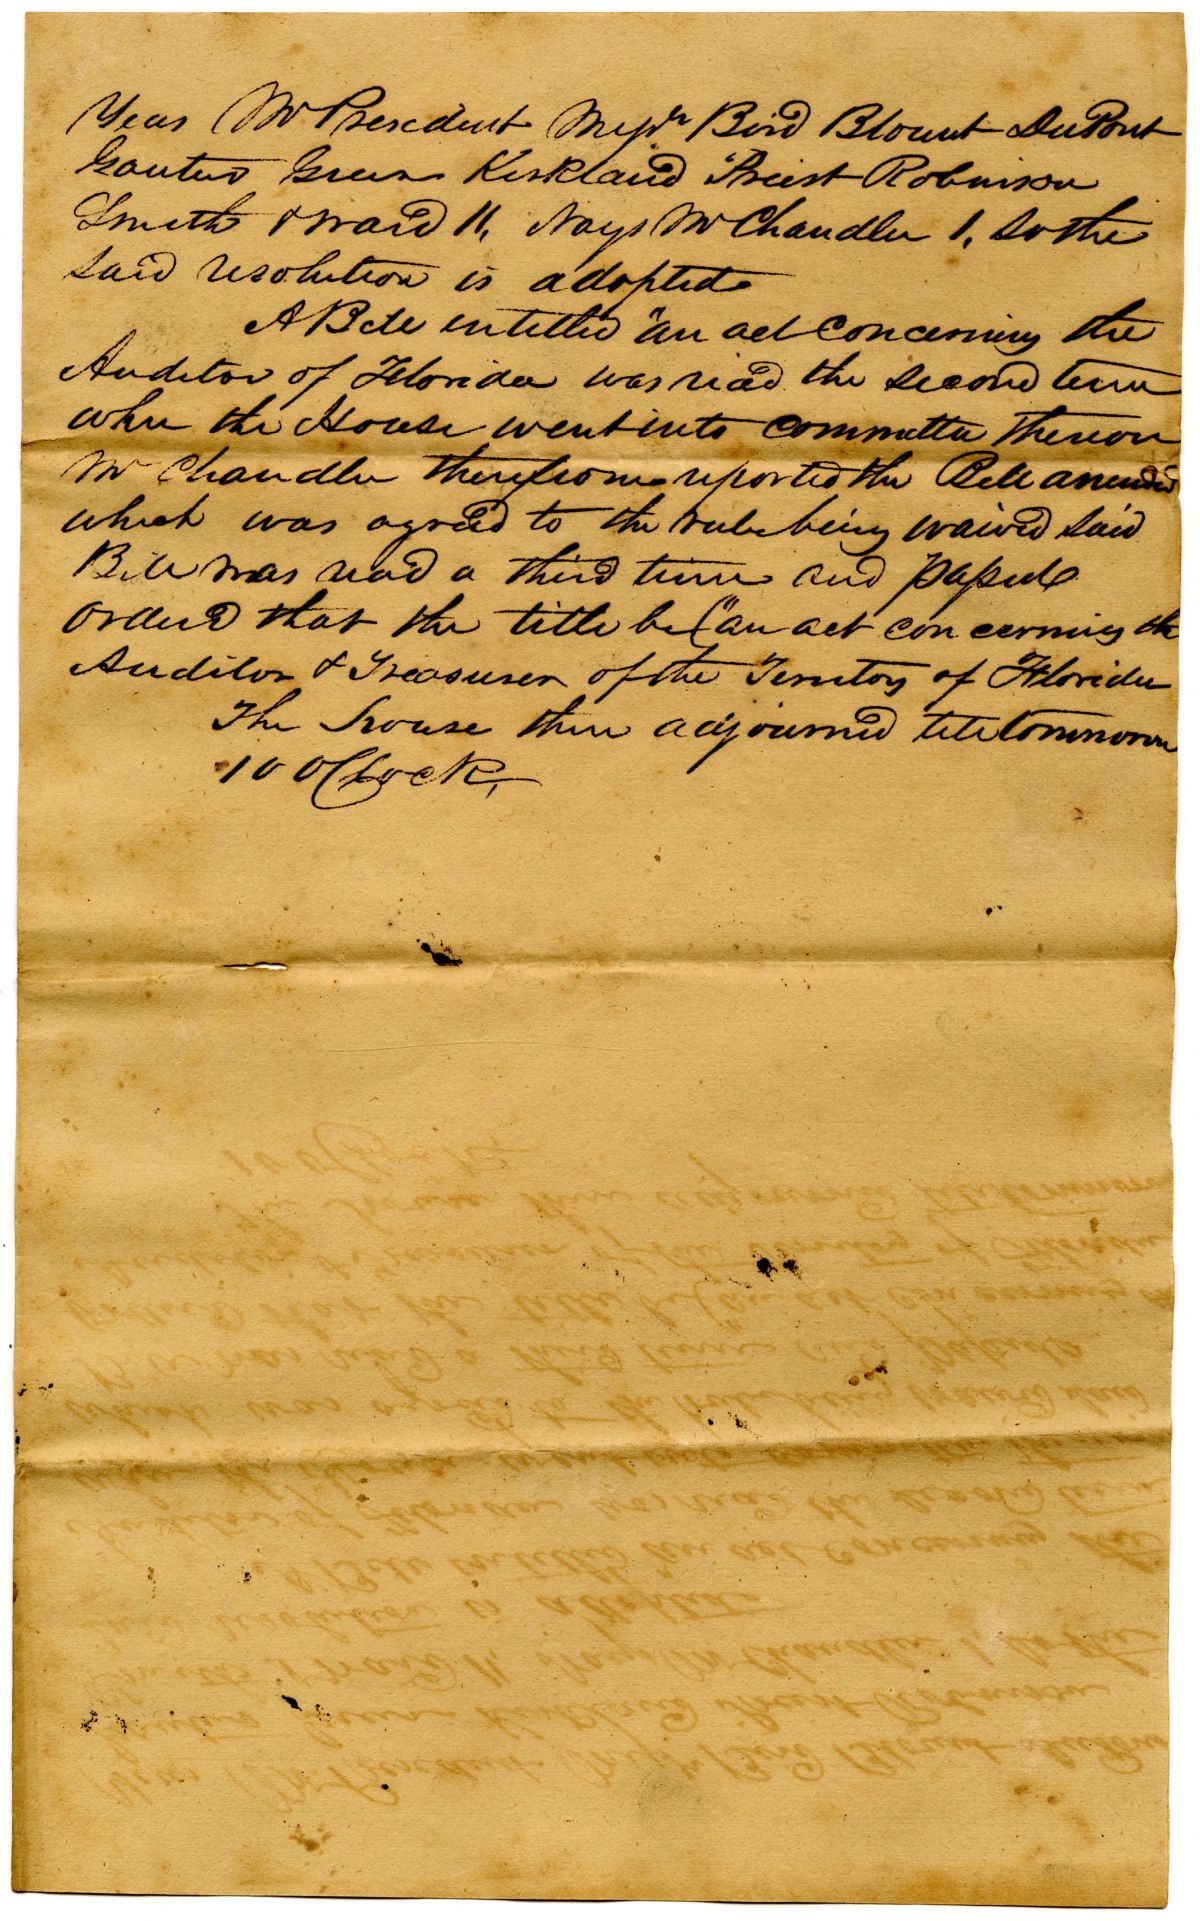 Yeas Mr President Messrs Bird Blount DuPont
Gautier Green Kirkland Priest Robinson
Smith & Ward 11, Nays Mr Chandler 1, So the
said resolution is adopted
A Bill entitled "an act concerning the
Auditor of Florida was read the second time
when the House went into committee thereon
Mr Chandler therefrom reported the Bill amended
which was agreed to the rule being waived said
Bill was read a third time and passed
Ordered that the title be "an act concerning the
Auditor & Treasurer of the Territory of Florida
The House then adjourned till tomorrow
10 OClock,